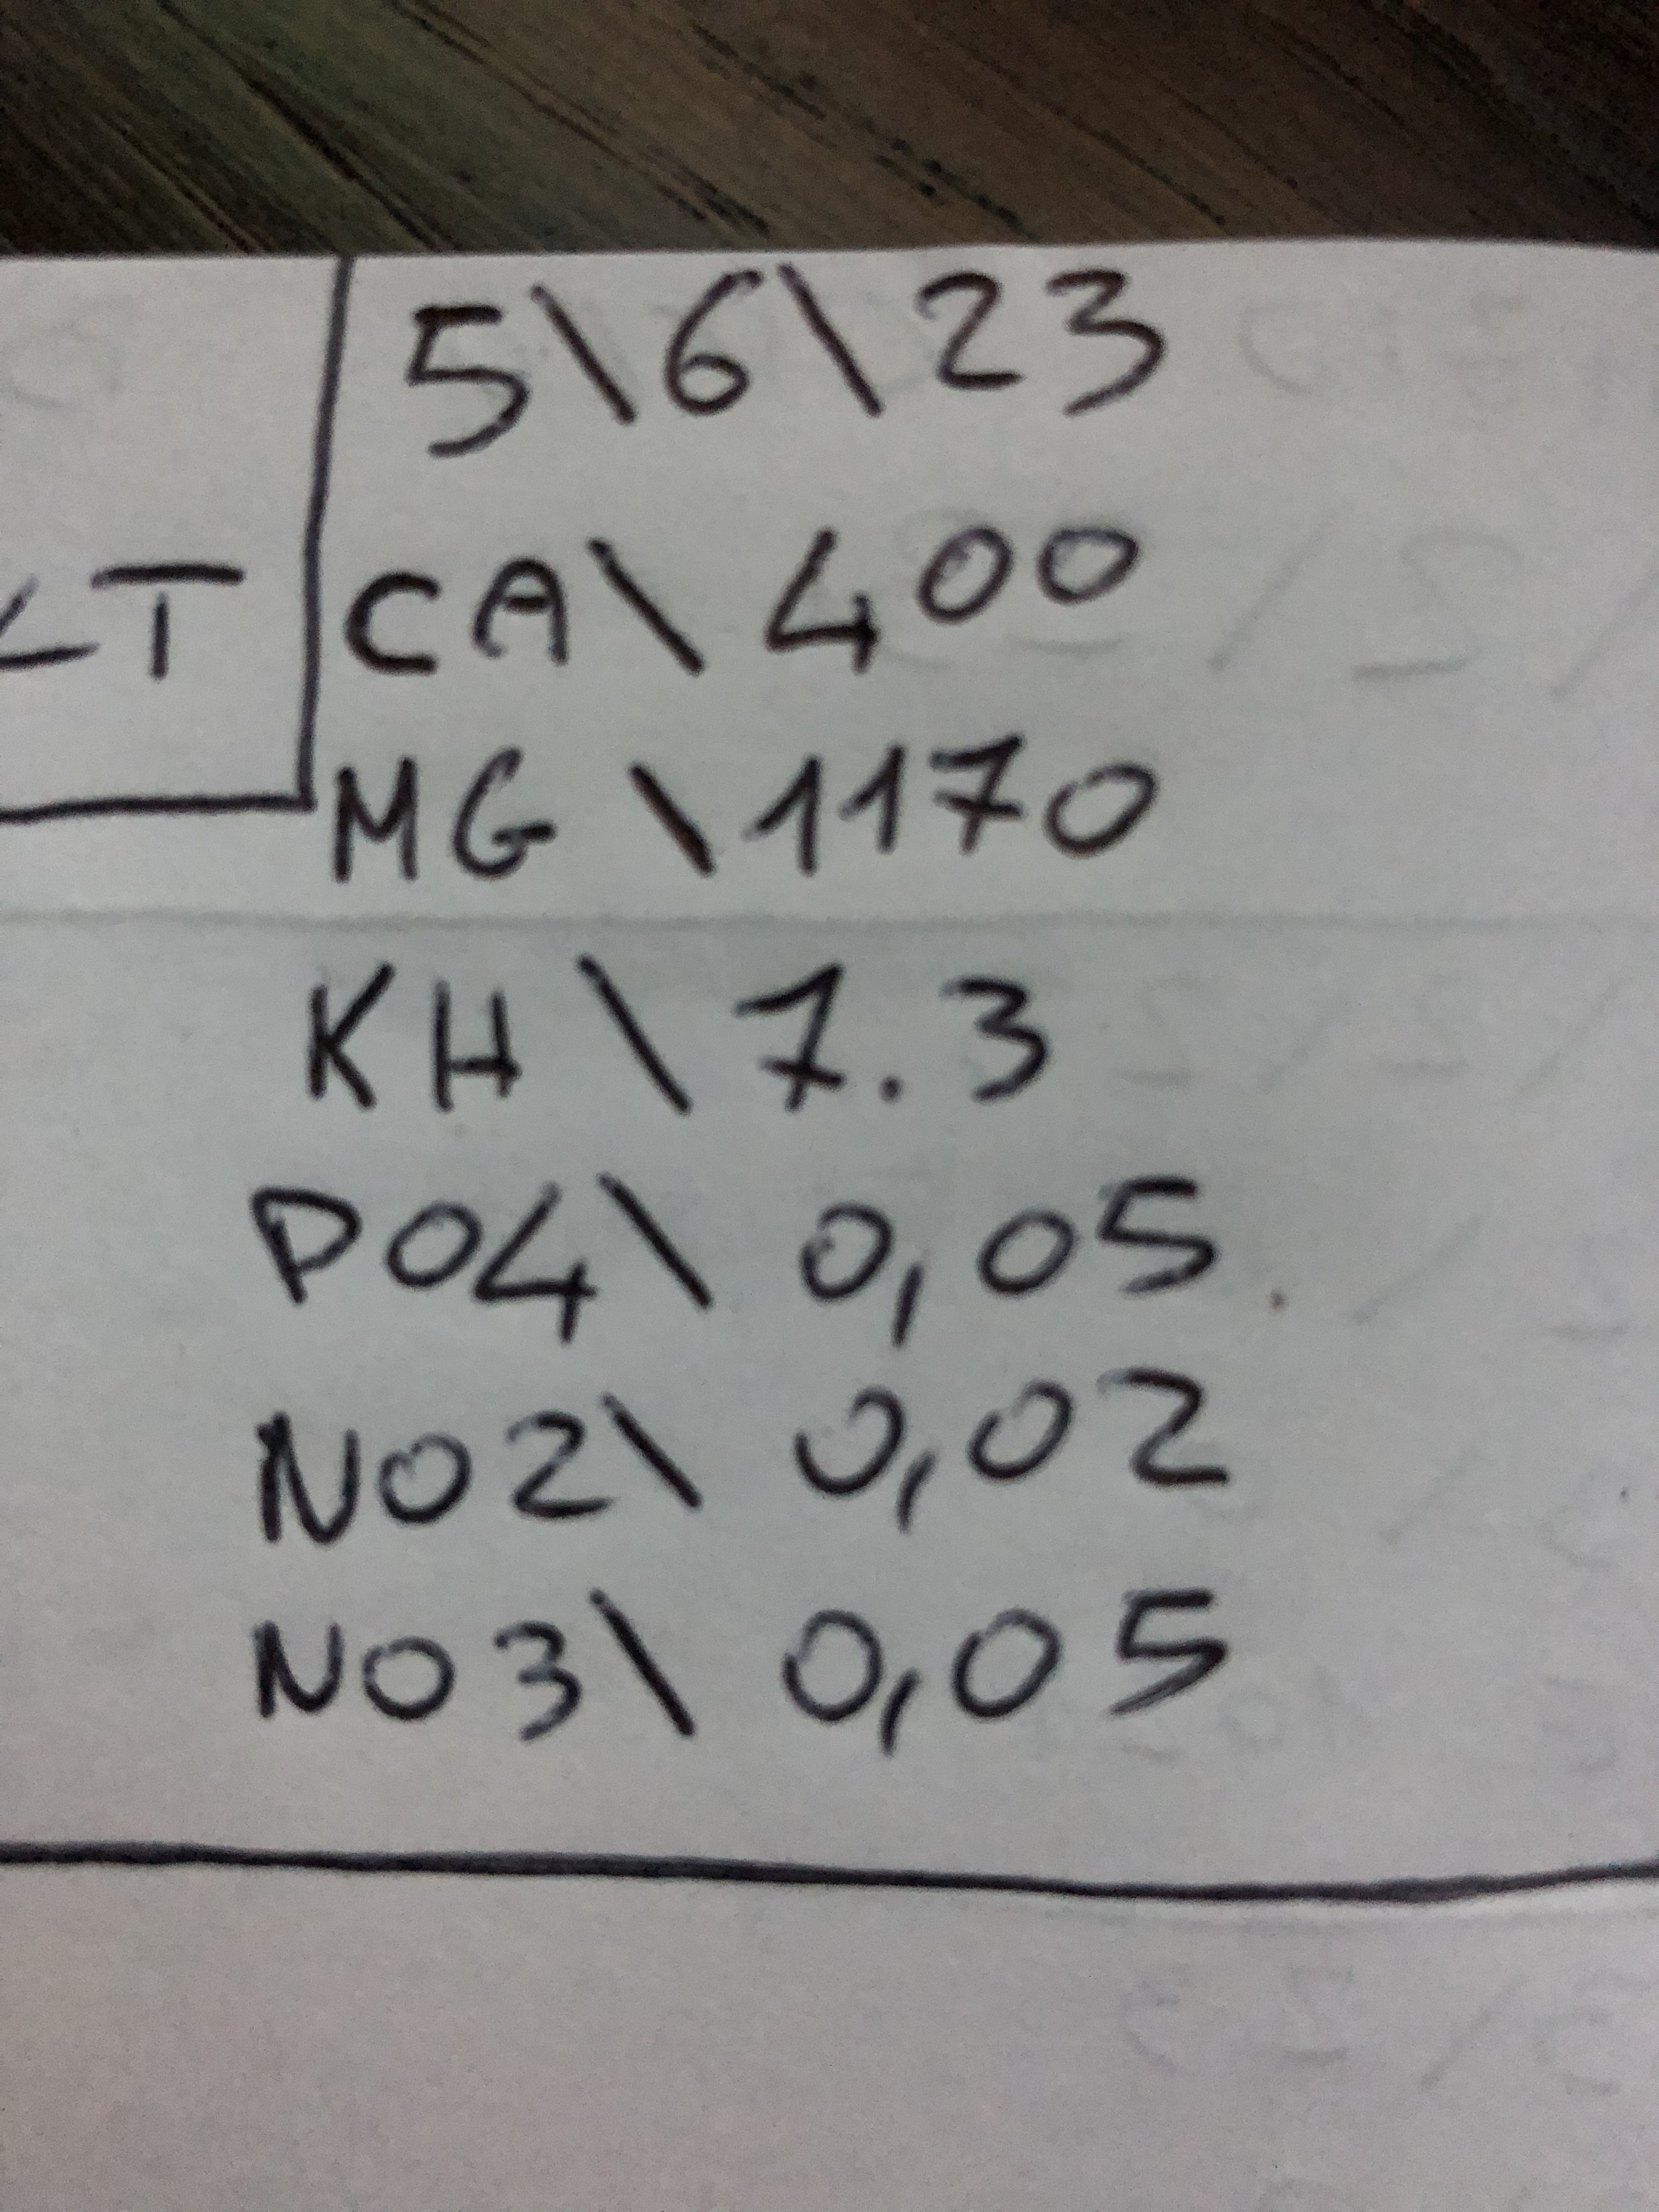 5\6\23
LT CA\400
MG\1170
KH\7.3
PO4\0,05
NO2\0,02
NO3\0,05